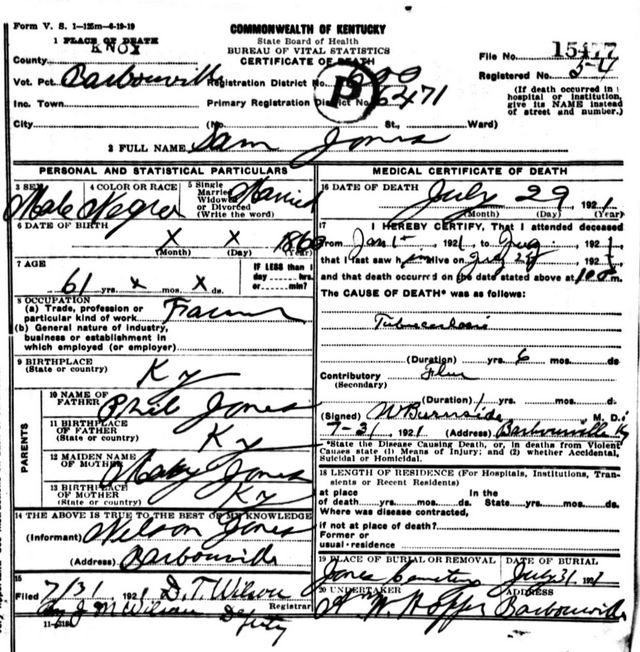 Form V. S. 1-125m-6-19-19
COMMONWEALTH OF KENTUCKY
State Board of Health
BUREAU OF VITAL STATISTICS
CERTIFICATE OF DEATH
1 PLACE OF DEATH
County KNOX
File No. 15477
Vot. Pct. Barbourville Registration District No. 600
Registered No. 54
Inc. Town Primary Registration District No. 6471
P
(If death occurred in a hospital or institution, give its NAME instead of street and number.)
City (No. St., Ward)
2 FULL NAME Sam Jones
PERSONAL AND STATISTICAL PARTICULARS
3 SEX Male
4 COLOR OR RACE Negro
5 Single Married Widowed or Divorced (Write the word) Married
6 DATE OF BIRTH x x 1860
(Month) (Day) (Year)
7 AGE 61 yrs. x mos. x ds.
IF LESS than 1 day hrs. or min.?
8 OCCUPATION
(a) Trade, profession or particular kind of work Farmer
(b) General nature of industry, business or establishment in which employed (or employer)
9 BIRTHPLACE (State or country) Ky
PARENTS
10 NAME OF FATHER Phil Jones
11 BIRTHPLACE OF FATHER (State or country) Ky
12 MAIDEN NAME OF MOTHER Jones
13 BIRTHPLACE OF MOTHER (State or country) Ky
14 THE ABOVE IS TRUE TO THE BEST OF MY KNOWLEDGE
(Informant) Wilson Jones
(Address) Barbourville
15 Filed 7/31 1921 D. T. Wilson Registrar
By J M Wilson Deputy
11-3184
MEDICAL CERTIFICATE OF DEATH
16 DATE OF DEATH July 29 1921
(Month) (Day) (Year)
17 I HEREBY CERTIFY, That I attended deceased
from Jan 1st 1921, to 192
that I last saw h im alive on July 192
and that death occurred on the date stated above at m.
The CAUSE OF DEATH* was as follows:
Tuberculosis
(Duration) yrs. 6 mos. ds.
Contributory Flu
(Secondary)
(Duration) 1 yrs. mos. ds.
(Signed) W Burnside M. D.
7-31 1921 (Address) Barbourville Ky
*State the Disease Causing Death, or, in deaths from Violent Causes state (1) Means of Injury; and (2) whether Accidental, Suicidal or Homicidal.
18 LENGTH OF RESIDENCE (For Hospitals, Institutions, Transients or Recent Residents)
at place of death yrs. mos. ds. In the State yrs. mos. ds.
Where was disease contracted,
if not at place of death?
Former or usual residence
19 PLACE OF BURIAL OR REMOVAL Jones Cemetery
DATE OF BURIAL July 31 192
20 UNDERTAKER W. Hopper
ADDRESS Barbourville